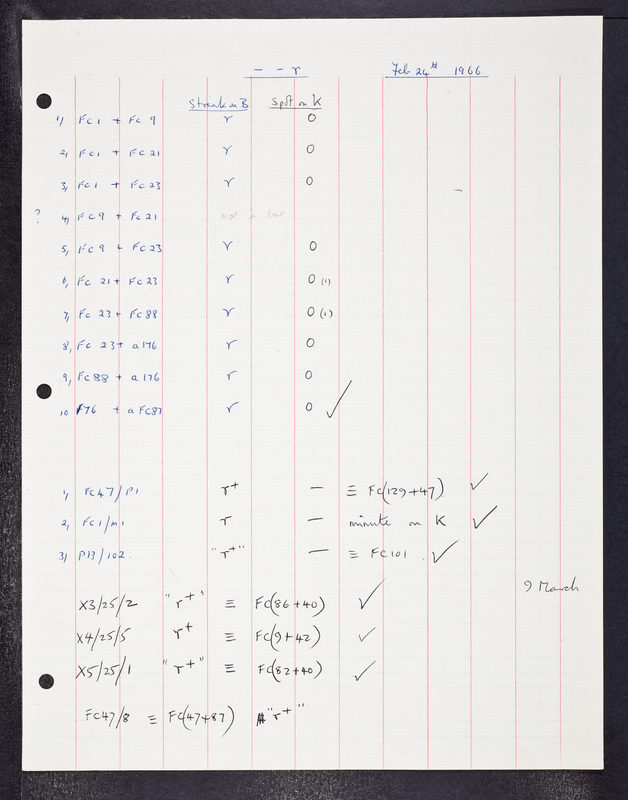 – – r Feb 24th 1966
Streak on B Spot on K
1) FC1 + FC 9 r 0
2) FC1 + FC 21 r 0
3) FC1 + FC 23 r 0
? 4) FC 9 + FC 21 Not
5) FC 9 + FC 23 r 0
6) FC 21 + FC 23 r 0 (1)
7) FC 23 + FC 88 r 0 (1)
8) FC 23 + a 176 r 0
9) FC 88 + a 176 r 0
10 + a FC87 r 0 ✓
1) FC47/P1 r+ — ≡ FC(129+47) ✓
2) FC1/m1 r — minute on K ✓
3) P13/102. "r+" — ≡ FC101. ✓
9 March
X3/25/2 "r+" ≡ FC(86+40) ✓
X4/25/5 r+ ≡ FC(9+42) ✓
X5/25/1 "r+" ≡ FC(82+40) ✓
FC47/8 ≡ FC(47+87) "r+"